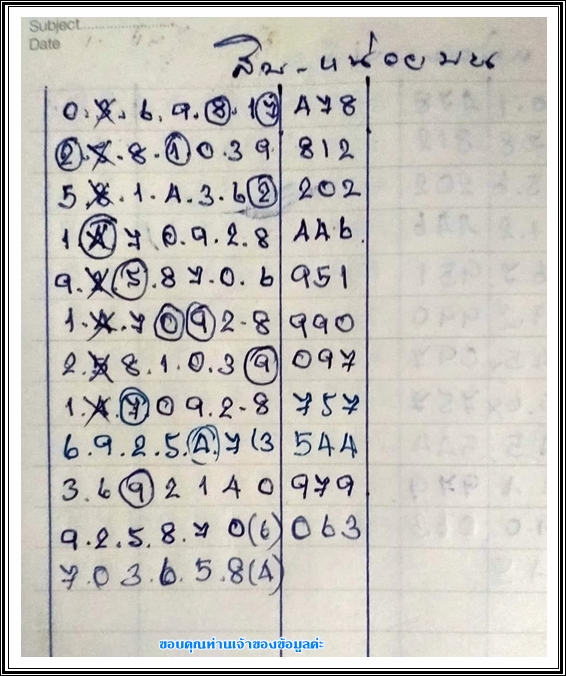 Subject
Date
สิบ-หน่อยบน
0.X.6.9.8.17 478
2.X.8.1039 812
5.8.1.4.3.62 202
1470.9.2.8 446
9.2587.0.6 951
1.4.70928 990
2.58.1.0.39 097
1.4.7092-8 757
6.9.2.5.4.7(3 544
3.6921 40 979
9.2.5.8.70(6) 063
7.03.6.5.8(4)
ขอบคุณท่านเจ้าของข้อมูลค่ะ